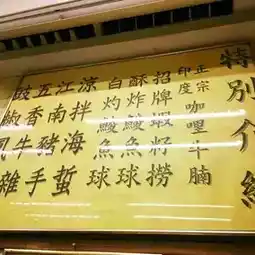 特別介紹
正宗
印度
咖哩牛腩
招牌蝦籽撈
酥炸鯪魚球
白灼鯪魚球
涼拌海蜇
江南豬手
五香牛雜